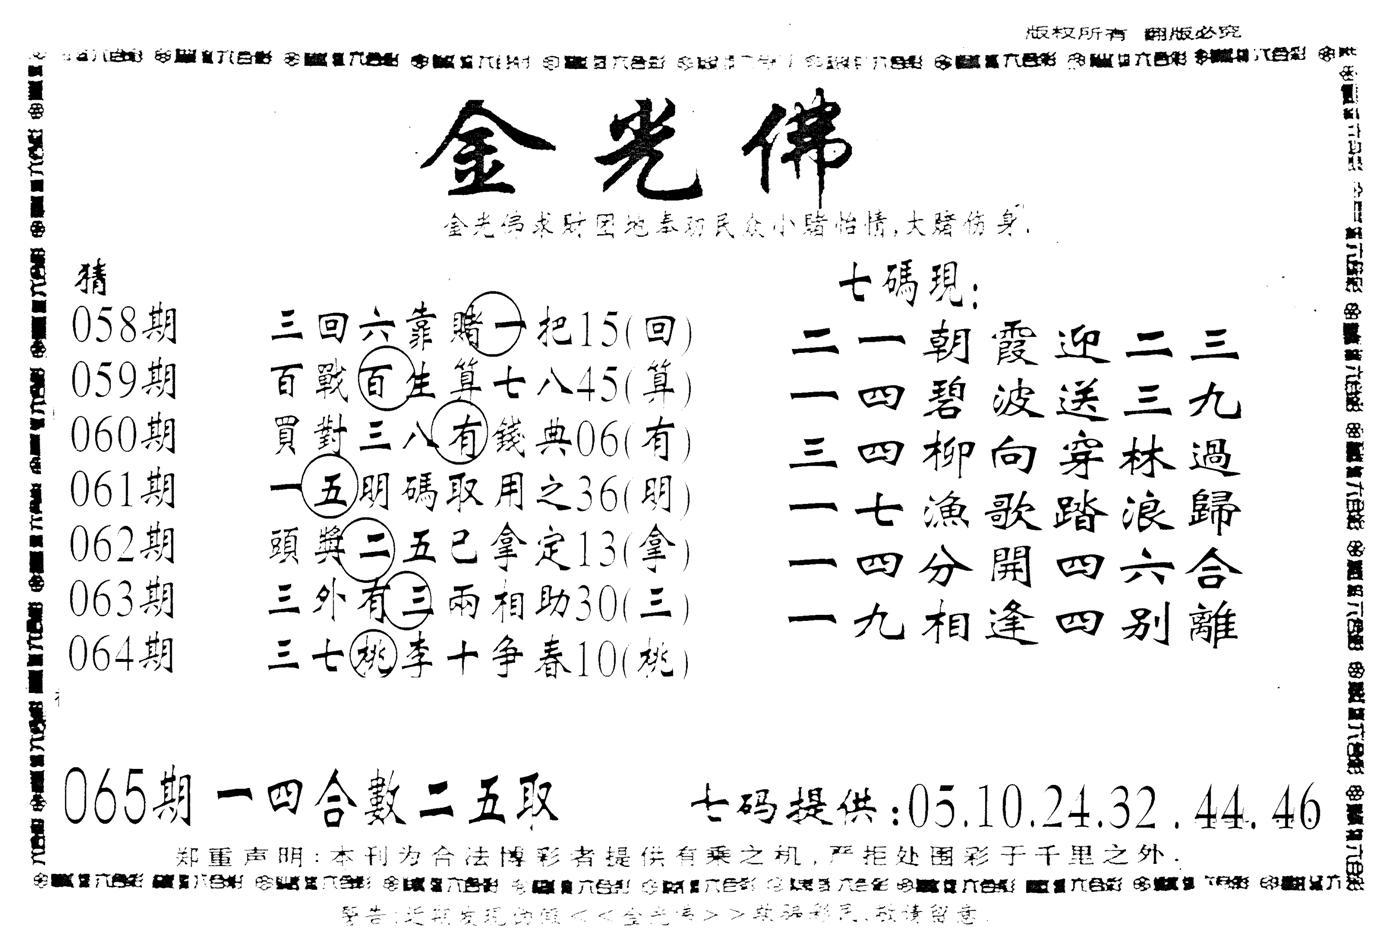 版权所有 翻版必究
金光佛
金光佛求财团地奉劝民众小赌怡情,大赌伤身.
猜
058期 三回六靠賭一把15(回)
059期 百戰百生算七八45(算)
060期 買對三八有錢典06(有)
061期 一五明碼取用之36(明)
062期 頭獎二五已拿定13(拿)
063期 三外有三兩相助30(三)
064期 三七桃李十争春10(桃)
七碼現:
二一朝霞迎二三
一四碧波送三九
三四柳向穿林過
一七漁歌踏浪歸
一四分開四六合
一九相逢四别離
065期 一四合數二五取
七码提供:05.10.24.32.44.46
郑重声明:本刊为合法博彩者提供有乘之机,严拒处围彩于千里之外.
警告:近期发现伪<<金光佛>>彩民,敬请留意.